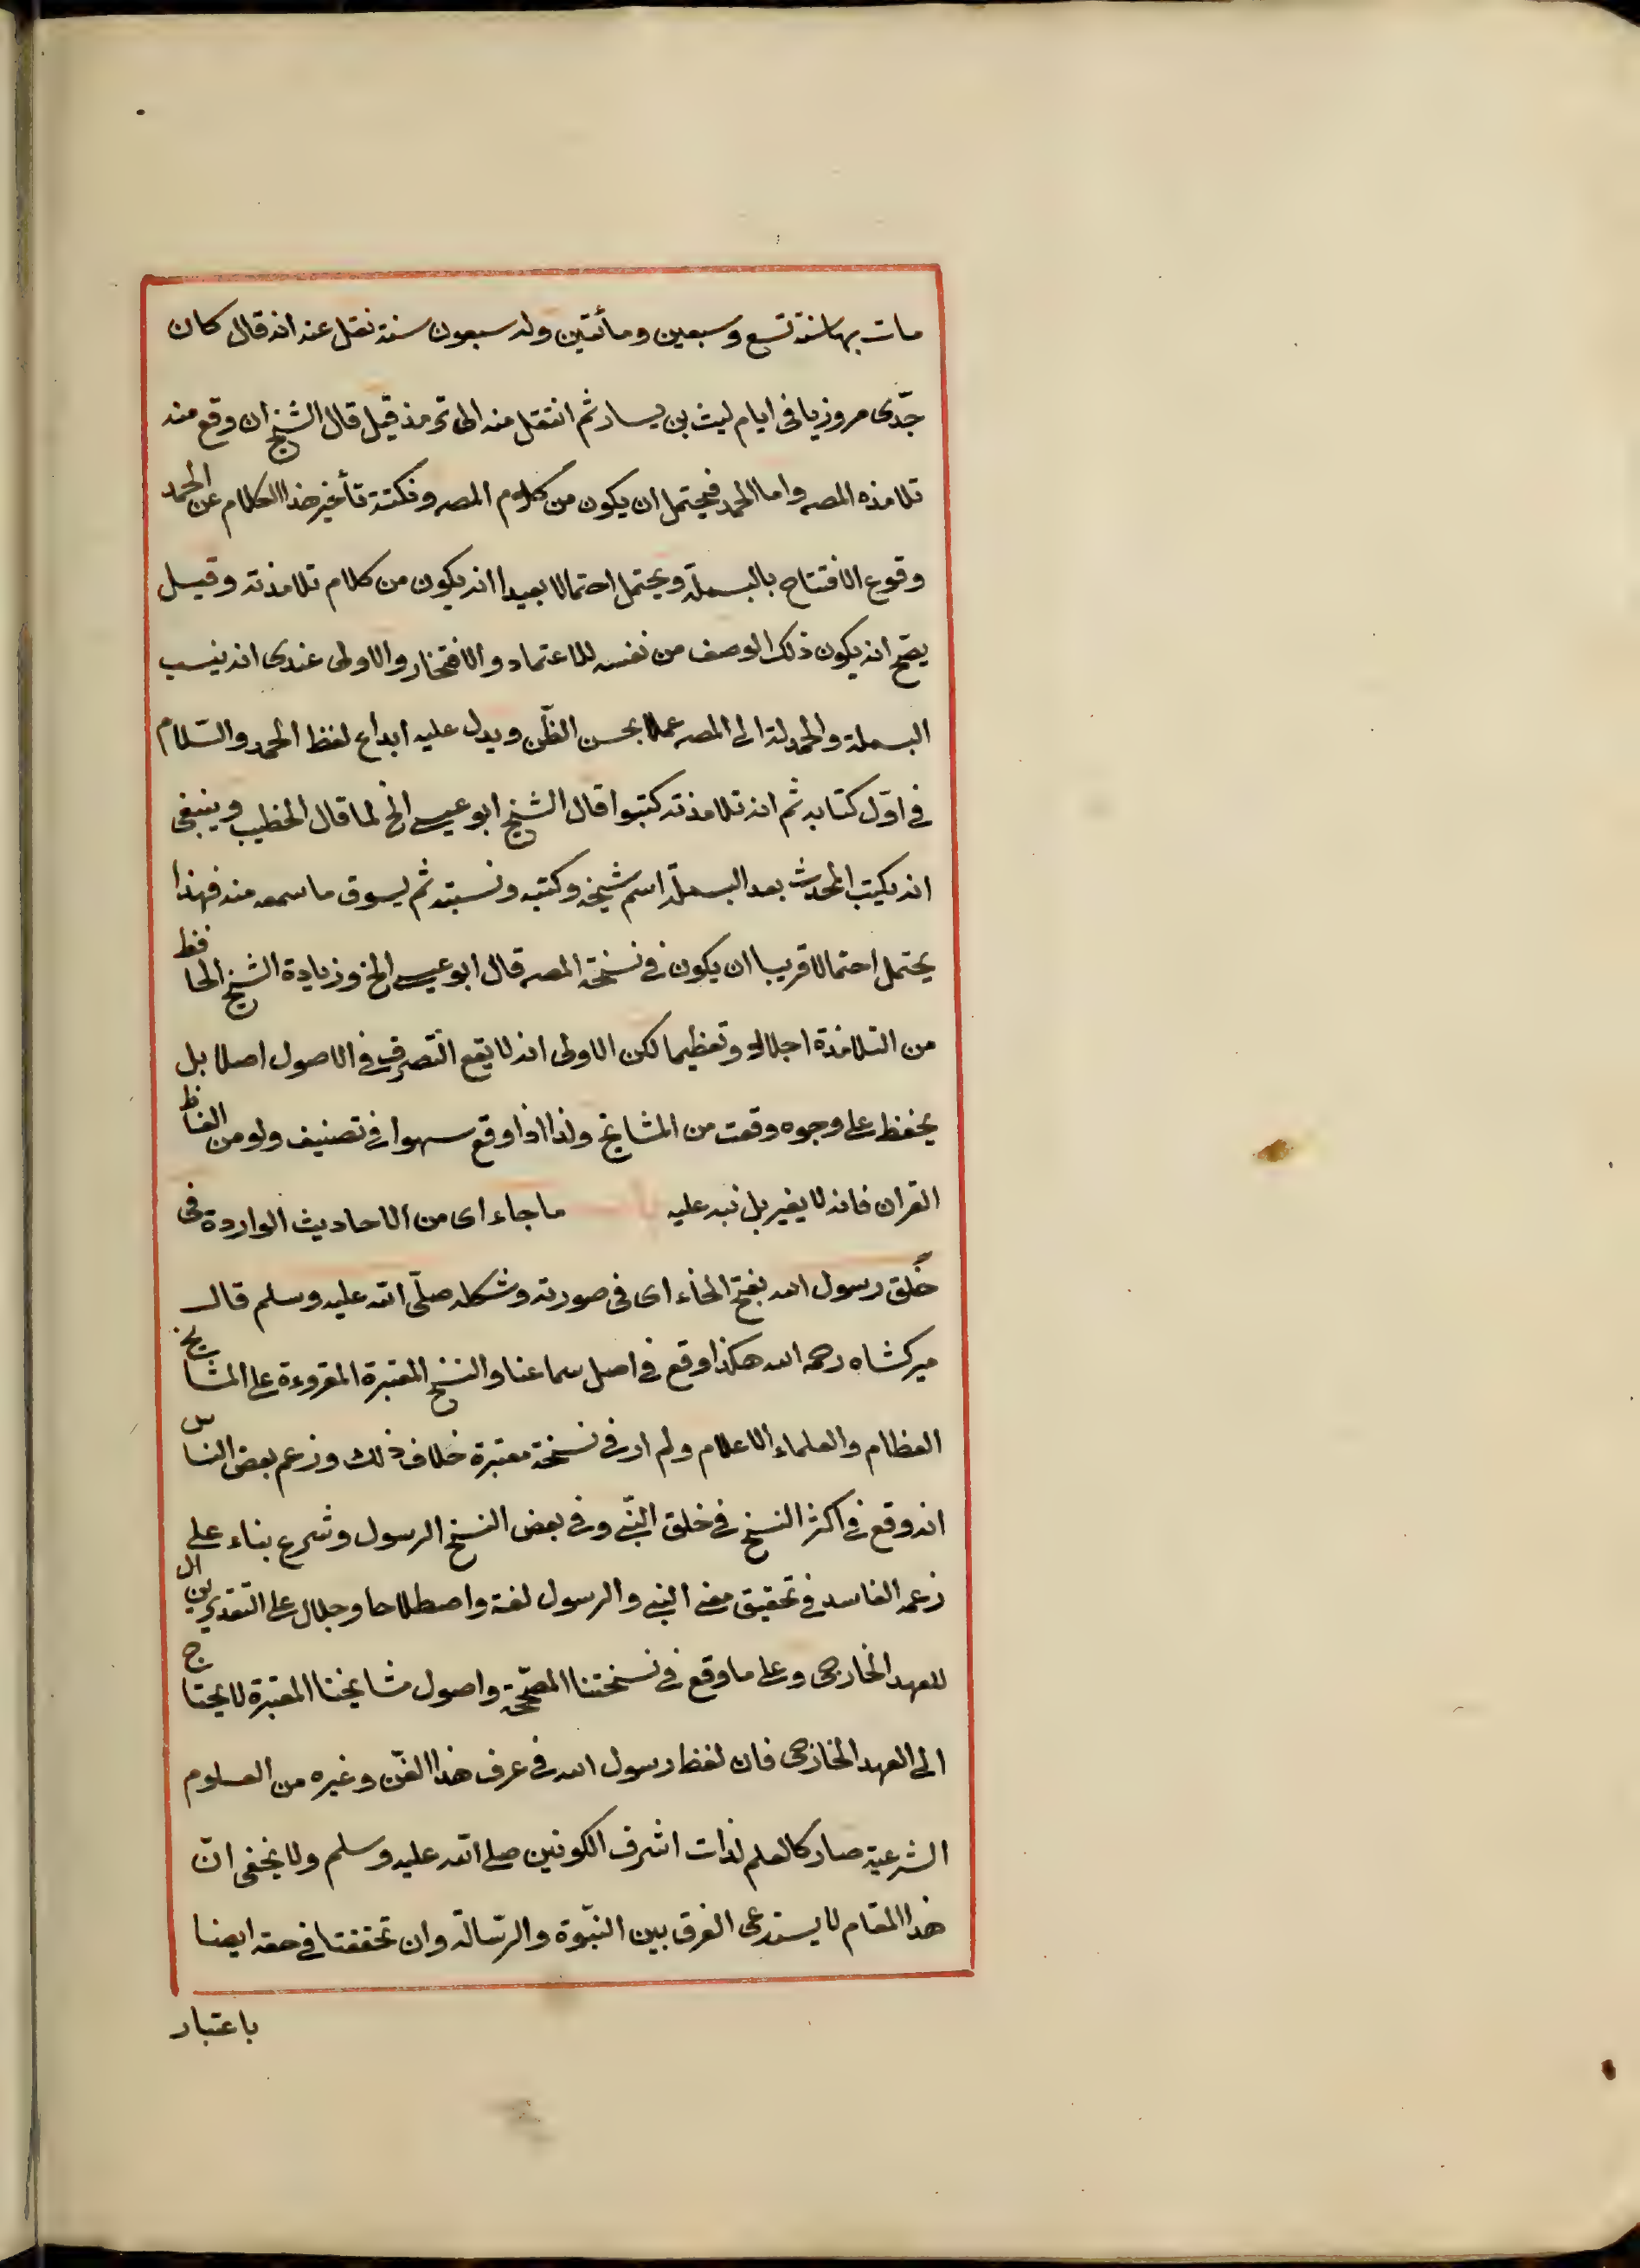 مات بها سنة تسع وسبعين ومأتين وله سبعون سنة نقل عنه انه قال كان
جدّى مروزيا فى ايام ليث بن يسار ثم انتقل منه الى ترمذ قيل قال الشيخ ان وقع منه
تلامذه المصـ واما الحمد فيحتمل ان يكون من كلام المصـ ونكتة تأخير هذا الكلام عن الحمد
وقوع الافتتاح بالبسملة ويحتمل احتمالا بعيدا انه يكون من كلام تلامذته وقيل
يصحّ انه يكون ذلك الوصف من نفسه للاعتماد والافتخار والاولى عندى انه ينسب
البسملة والحمدلة الى المصـ عملا بحسن الظّن ويدل عليه ابداع لفظ الحمد والسّلام
فى اوّل كتابه ثم انه تلامذته كتبوا قال الشيخ ابو عيسى الخ لما قال الخطيب وينبغى
انه يكتب المحدث بعد البسملة اسم شيخه وكنيته ونسبته ثم يسوق ما سمعه منه فهذا
يحتمل احتمالا قريبا ان يكون فى نسخة المصـ قال ابو عيسى الخ وزيادة الشيخ الحافظ
من التلامذة اجلالا وتعظيما لكن الاولى انه لا يقع التصرف فى الاصول اصلا بل
يحفظ على وجوه وقعت من المشايخ ولذا اذا وقع سهوا فى تصنيف ولو من الفاظ
القران فانه لا يغير بل نبه عليه باب ما جاء اى من الاحاديث الواردة فى
خَلق رسول الله بفتح الخاء اى فى صورته وشكله صلّى الله عليه وسلم قال
ميركشاه رحمه الله هكذا وقع فى اصل سماعنا والنسخ المعتبرة المقروءة على المشايخ
العظام والعلماء الاعلام ولم ار فى نسخة معتبرة خلاف ذلك وزعم بعض الناس
انه وقع فى اكثر النسخ فى خلق النّبى وفى بعض النسخ الرسول وشرع بناء على
زعمه الفاسد فى تحقيق معنى النبى والرسول لغة واصطلاحا وجلال على التقديرين ال
للعهد الخارجى وعلى ما وقع فى نسختنا المصحّحة واصول مشايخنا المعتبرة لا يحتاج
الى العهد الخارجى فان لفظ رسول الله فى عرف هذا الفنّ وغيره من العلوم
الشرعية صار كالعلم لذات اشرف الكونين صلى الله عليه وسلم ولا يخفى انّ
هذا المقام لا يستدعى الفرق بين النبّوة والرّسالة وان تحققتا فى حقه ايضا
باعتبار